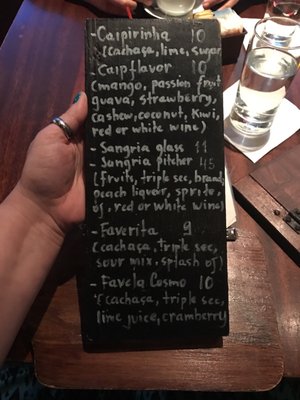 - Caipirinha 10
(cachaça, lime, sugar
- Caipflavor 10
(mango, passion fruit
guava, strawberry,
cashew, coconut, kiwi,
red or white wine)
- Sangria glass 11
- Sangria pitcher 45
(fruits, triple sec, brandy
peach liquor, sprite,
oj, red or white wine)
- Faverita 9
(cachaça, triple sec,
sour mix, splash oj)
- Favela Cosmo 10
(cachaça, triple sec,
lime juice, cramberry)